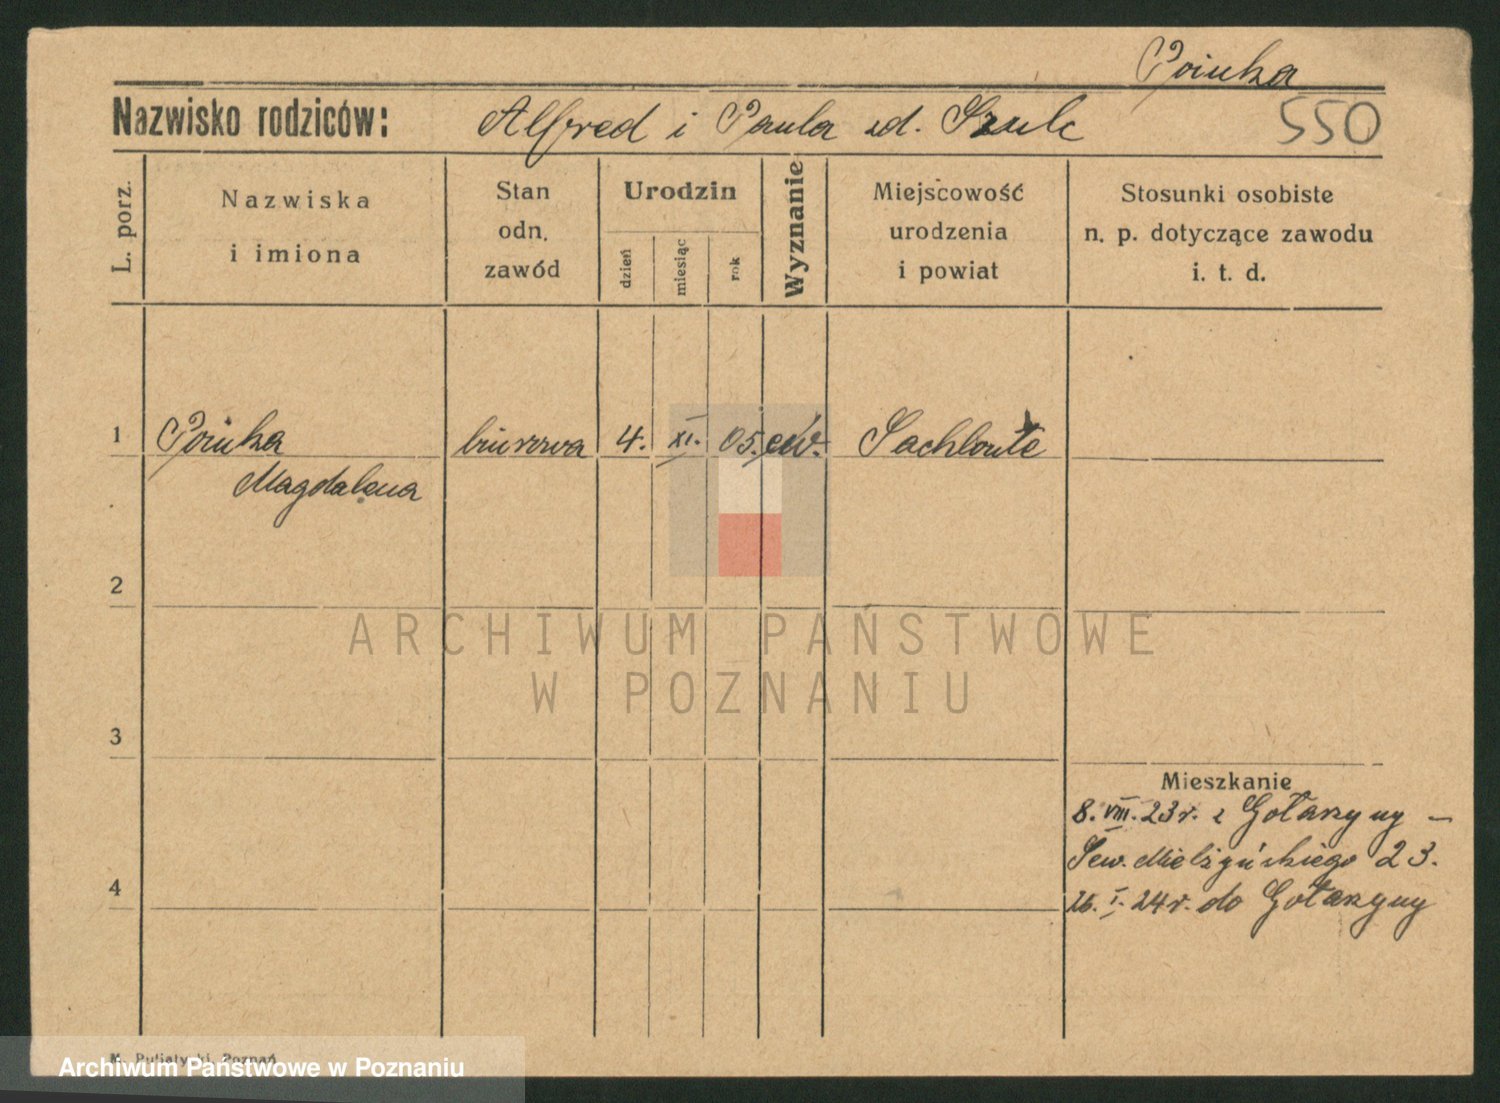 Poinka
550
Nazwisko rodziców: Alfred i Paula zd. Szulc
L. porz.
Nazwiska
i imiona
Stan
odn.
zawód
Urodzin
dzień
miesiąc
rok
Wyznanie
Miejscowość
urodzenia
i powiat
Stosunki osobiste
n. p. dotyczące zawodu
i. t. d.
1 Poinka biurowa 4. XI. 05. ew.
Magdalena
2
ARCHIWUM PAŃSTWOWE
W POZNANIU
3
Mieszkanie
8. VIII. 23r. z Gołaszyny –
Sew. Mielżyńskiego 23.
4
26. I. 24r. do Gołaszyny
M. Putiatycki, Poznań
Archiwum Państwowe w Poznaniu